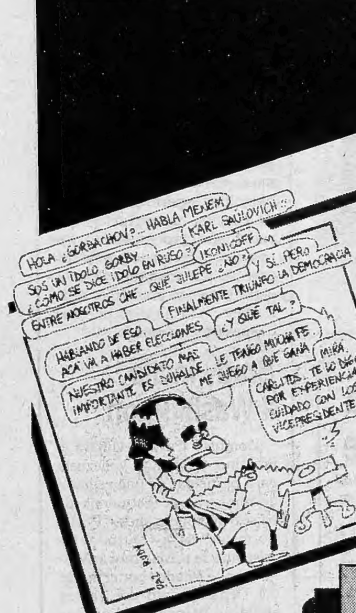 HOLA ¿GORBACHOV?.. HABLA MENEM
KARL SAULOVICH..
SOS UN IDOLO GORBY..
¿COMO SE DICE IDOLO EN RUSO?
IKONICOFF
ENTRE NOSOTROS CHE.. QUE JULEPE ¿NO?
Y SI.. PERO
FINALMENTE TRIUNFO LA DEMOCRACIA
HABLANDO DE ESO..
ACA VA A HABER ELECCIONES
¿Y QUE TAL?
NUESTRO CANDIDATO MAS
IMPORTANTE ES DUHALDE..
LE TENGO MUCHA FE
ME JUEGO A QUE GANA
MIRA
CARLITOS.. TE LO DIGO
POR EXPERIENCIA
CUIDADO CON LOS
VICEPRESIDENTES
PAZ RUDY